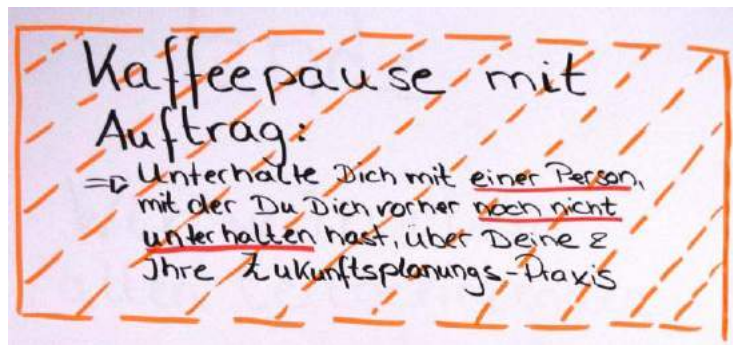 Kaffeepause mit
Auftrag:
⇒ Unterhalte Dich mit einer Person,
mit der Du Dich vorher noch nicht
unterhalten hast, über Deine &
Ihre Zukunftsplanungs-Praxis